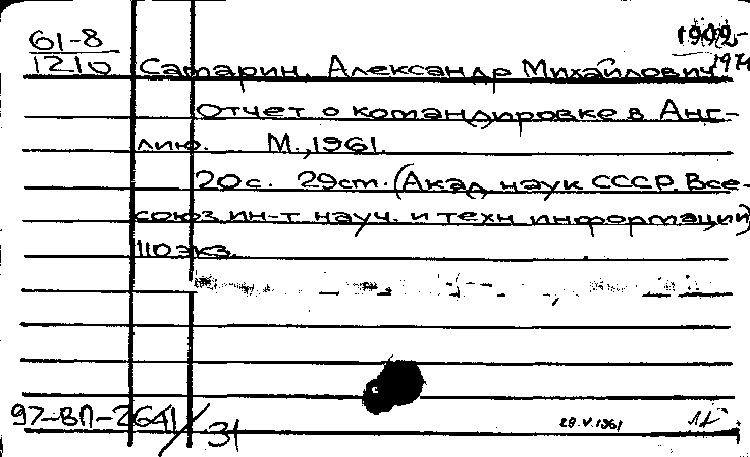 61-8
1210
1902-
1974
Сатарин, Александр Михайлович
Отчет о командировке в Анг-
лию. М., 1961.
20с. 29см. (Акад. наук СССР. Все-
союз. ин-т науч. и техн. информации)
110 экз.
97-ВП-2641/31
29.V.1961